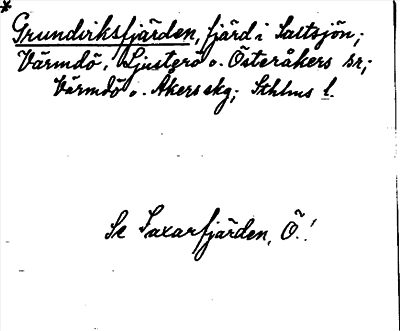 *
Grundviksfjärden, fjärd i Saltsjön;
Värmdö, Ljusterö o. Österåkers sr;
Värmdö o. Åkers skg; Sthlms l.
Se Saxarfjärden, Ö.!